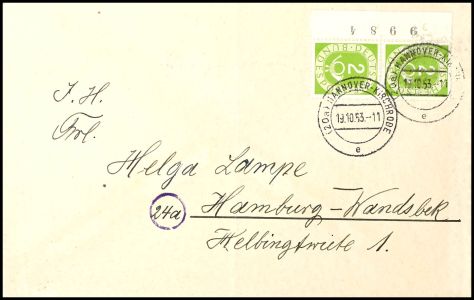 9 9 8 4
DEUTSCHE BUNDESPOST
2
DEUTSCHE BUNDESPOST
2
(20a) HANNOVER-KIRCHRODE
19.10.53.-11
e
(20a) HANNOVER-KIRCHRODE
19.10.53.-11
e
I. H.
Frl.
Helga Lampe
24a
Hamburg-Wandsbek
Helbingtwiete 1.